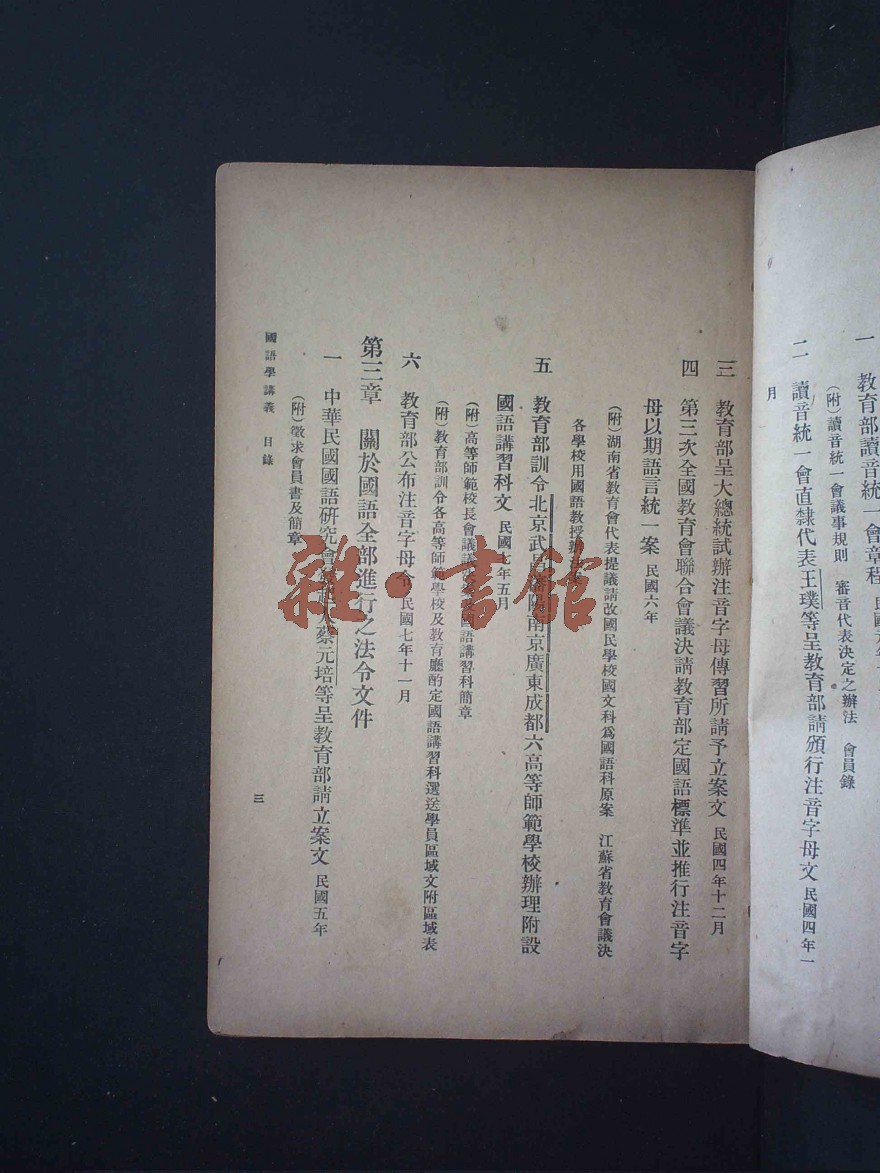 一　教育部讀音統一會章程
(附)讀音統一會議事規則　審音代表決定之辦法　會員錄
二　讀音統一會直隸代表王璞等呈教育部請頒行注音字母文　民國四年一
月
三　教育部呈大總統試辦注音字母傳習所請予立案文　民國四年十二月
四　第三次全國教育會聯合會議決請教育部定國語標準並推行注音字
母以期語言統一案　民國六年
(附)湖南省教育會代表提議請改國民學校國文科爲國語科原案　江蘇省教育會議決
各學校用國語教授
五　教育部訓令北京武昌瀋陽南京廣東成都六高等師範學校辦理附設
國語講習科文　民國七年五月
(附)高等師範校長會議 國語講習科簡章
(附)教育部訓令各高等師範學校及教育廳酌定國語講習科選送學員區域文附區域表
六　教育部公布注音字母令　民國七年十一月
第三章　關於國語全部進行之法令文件
一　中華民國國語研究會 蔡元培等呈教育部請立案文　民國五年
(附)徵求會員書及簡章
國語學講義　目錄
三
雜·書館